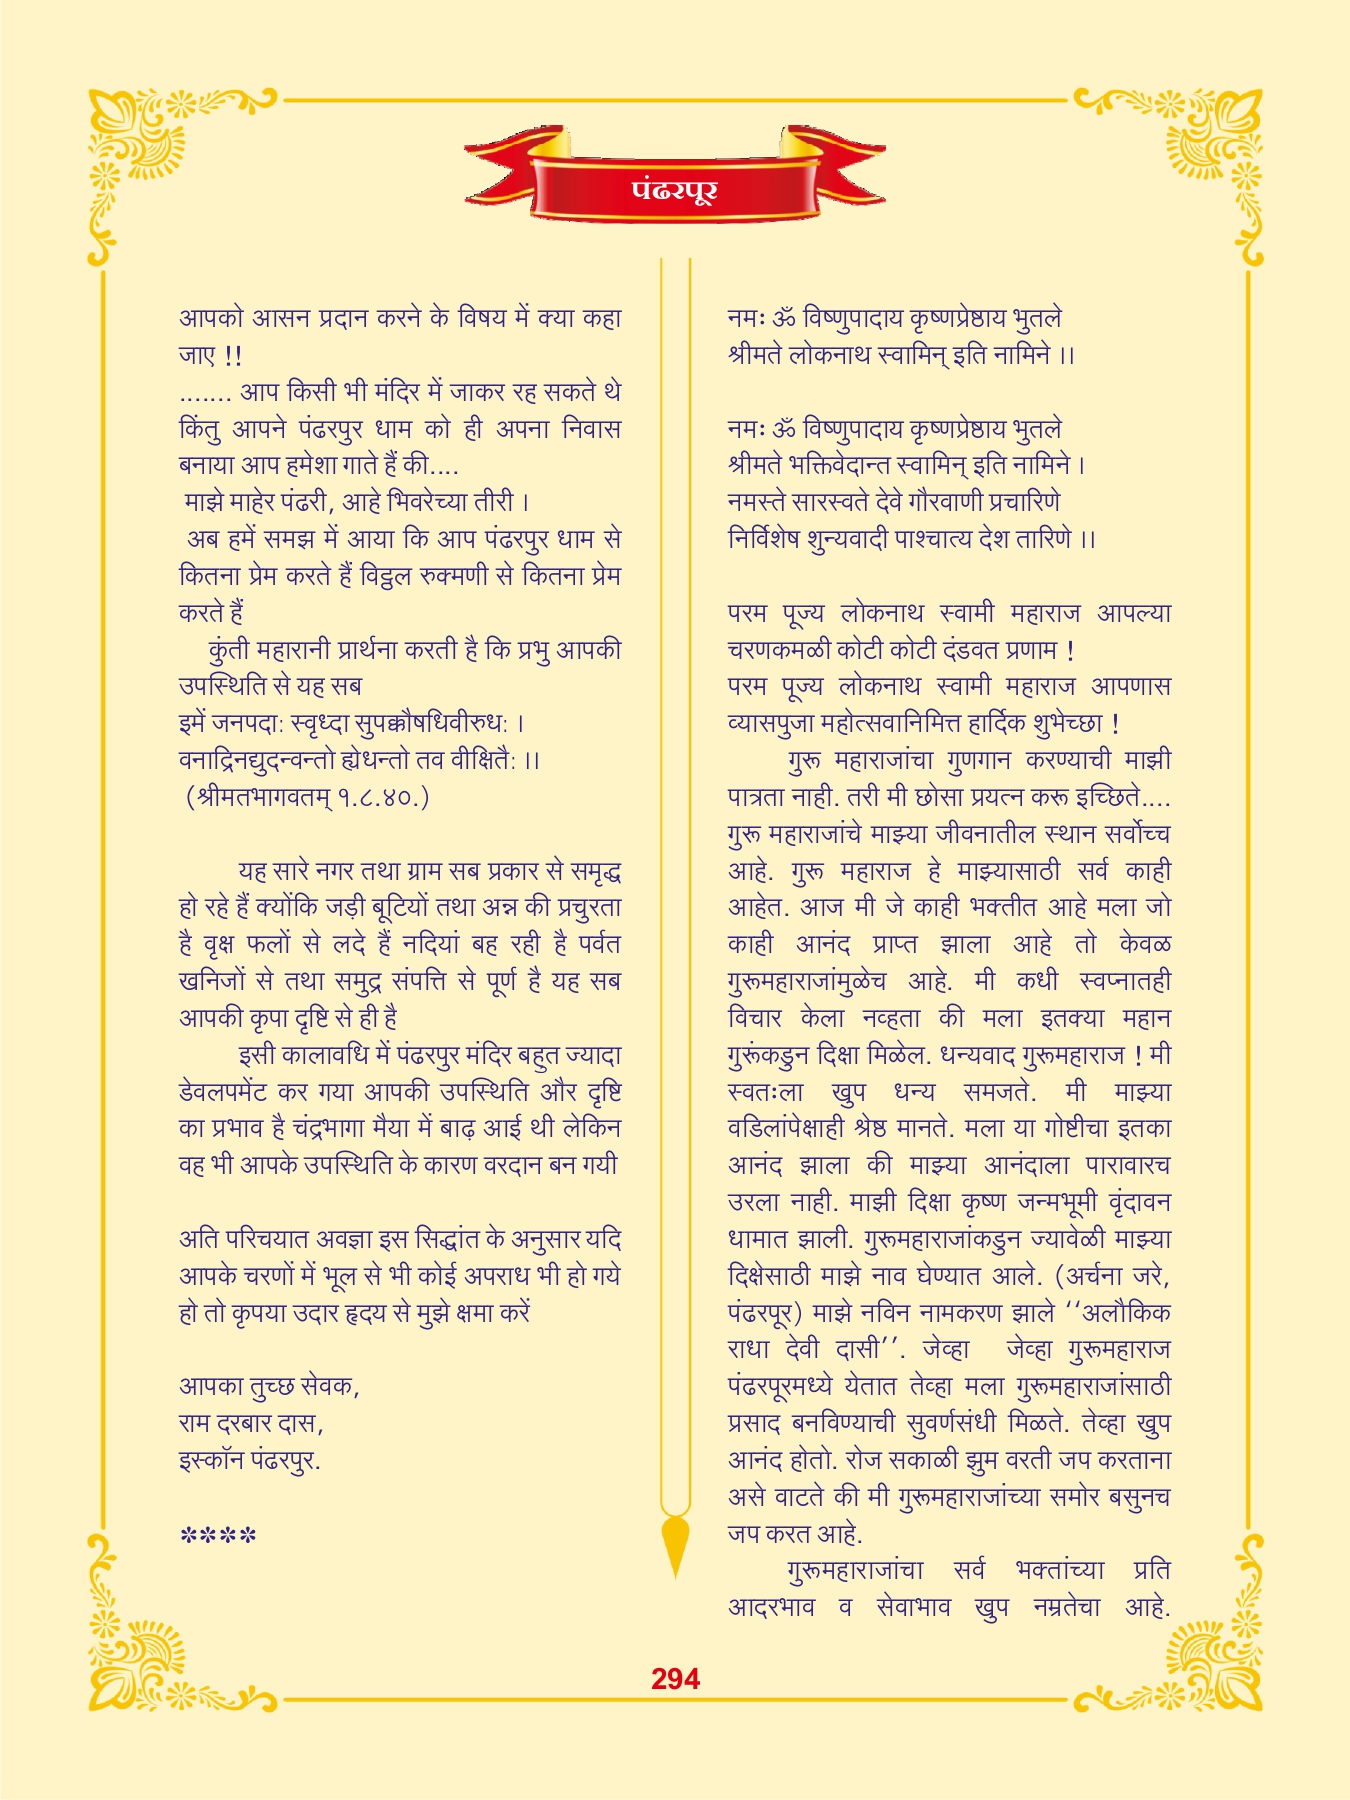 पंढरपूर
आपको आसन प्रदान करने के विषय में क्या कहा
जाए !!
....... आप किसी भी मंदिर में जाकर रह सकते थे
किंतु आपने पंढरपुर धाम को ही अपना निवास
बनाया आप हमेशा गाते हैं की....
माझे माहेर पंढरी, आहे भिवरेच्या तीरी ।
अब हमें समझ में आया कि आप पंढरपुर धाम से
कितना प्रेम करते हैं विट्ठल रुक्मणी से कितना प्रेम
करते हैं
कुंती महारानी प्रार्थना करती है कि प्रभु आपकी
उपस्थिति से यह सब
इमें जनपदा: स्वृध्दा सुपक्कौषधिवीरुध: ।
वनाद्रिनद्युदन्वन्तो ह्येधन्तो तव वीक्षितै: ।।
(श्रीमतभागवतम् १.८.४०.)
यह सारे नगर तथा ग्राम सब प्रकार से समृद्ध
हो रहे हैं क्योंकि जड़ी बूटियों तथा अन्न की प्रचुरता
है वृक्ष फलों से लदे हैं नदियां बह रही है पर्वत
खनिजों से तथा समुद्र संपत्ति से पूर्ण है यह सब
आपकी कृपा दृष्टि से ही है
इसी कालावधि में पंढरपुर मंदिर बहुत ज्यादा
डेवलपमेंट कर गया आपकी उपस्थिति और दृष्टि
का प्रभाव है चंद्रभागा मैया में बाढ़ आई थी लेकिन
वह भी आपके उपस्थिति के कारण वरदान बन गयी
अति परिचयात अवज्ञा इस सिद्धांत के अनुसार यदि
आपके चरणों में भूल से भी कोई अपराध भी हो गये
हो तो कृपया उदार हृदय से मुझे क्षमा करें
आपका तुच्छ सेवक,
राम दरबार दास,
इस्कॉन पंढरपुर.
****
नमः ॐ विष्णुपादाय कृष्णप्रेष्ठाय भुतले
श्रीमते लोकनाथ स्वामिन् इति नामिने ।।
नमः ॐ विष्णुपादाय कृष्णप्रेष्ठाय भुतले
श्रीमते भक्तिवेदान्त स्वामिन् इति नामिने ।
नमस्ते सारस्वते देवे गौरवाणी प्रचारिणे
निर्विशेष शुन्यवादी पाश्चात्य देश तारिणे ।।
परम पूज्य लोकनाथ स्वामी महाराज आपल्या
चरणकमळी कोटी कोटी दंडवत प्रणाम !
परम पूज्य लोकनाथ स्वामी महाराज आपणास
व्यासपुजा महोत्सवानिमित्त हार्दिक शुभेच्छा !
गुरू महाराजांचा गुणगान करण्याची माझी
पात्रता नाही. तरी मी छोसा प्रयत्न करू इच्छिते....
गुरू महाराजांचे माझ्या जीवनातील स्थान सर्वोच्च
आहे. गुरू महाराज हे माझ्यासाठी सर्व काही
आहेत. आज मी जे काही भक्तीत आहे मला जो
काही आनंद प्राप्त झाला आहे तो केवळ
गुरूमहाराजांमुळेच आहे. मी कधी स्वप्नातही
विचार केला नव्हता की मला इतक्या महान
गुरूंकडुन दिक्षा मिळेल. धन्यवाद गुरूमहाराज ! मी
स्वतःला खुप धन्य समजते. मी माझ्या
वडिलांपेक्षाही श्रेष्ठ मानते. मला या गोष्टीचा इतका
आनंद झाला की माझ्या आनंदाला पारावारच
उरला नाही. माझी दिक्षा कृष्ण जन्मभूमी वृंदावन
धामात झाली. गुरूमहाराजांकडुन ज्यावेळी माझ्या
दिक्षेसाठी माझे नाव घेण्यात आले. (अर्चना जरे,
पंढरपूर) माझे नविन नामकरण झाले ‘‘अलौकिक
राधा देवी दासी’’. जेव्हा जेव्हा गुरूमहाराज
पंढरपूरमध्ये येतात तेव्हा मला गुरूमहाराजांसाठी
प्रसाद बनविण्याची सुवर्णसंधी मिळते. तेव्हा खुप
आनंद होतो. रोज सकाळी झुम वरती जप करताना
असे वाटते की मी गुरूमहाराजांच्या समोर बसुनच
जप करत आहे.
गुरूमहाराजांचा सर्व भक्तांच्या प्रति
आदरभाव व सेवाभाव खुप नम्रतेचा आहे.
294